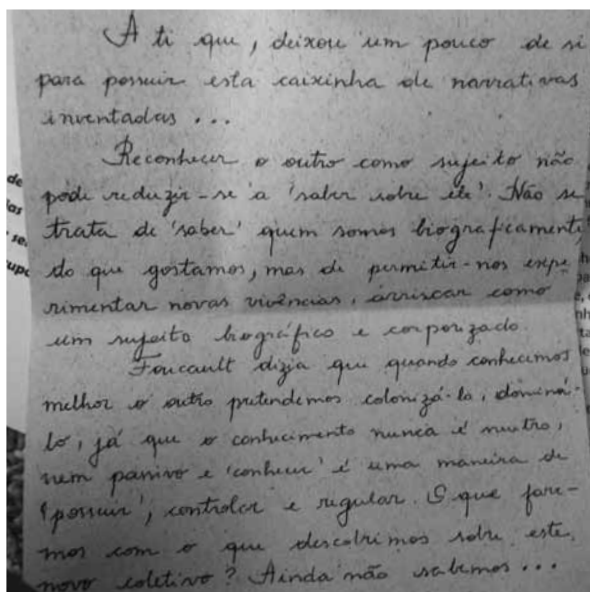 A ti que, deixou um pouco de si
para possuir esta caixinha de narrativas
inventadas ...
Reconhecer o outro como sujeito não
pode reduzir-se a 'saber sobre ele'. Não se
trata de 'saber' quem somos biograficamente,
do que gostamos, mas de permitir-nos expe
rimentar novas vivências, arriscar como
um sujeito biográfico e corporizado.
Foucault dizia que quando conhecemos
melhor o outro pretendemos colonizá-lo, dominá-
lo, já que o conhecimento nunca é neutro,
nem passivo e 'conhecer' é uma maneira de
'possuir', controlar e regular. O que fare-
mos com o que descobrimos sobre este
novo coletivo? Ainda não sabemos ...
de